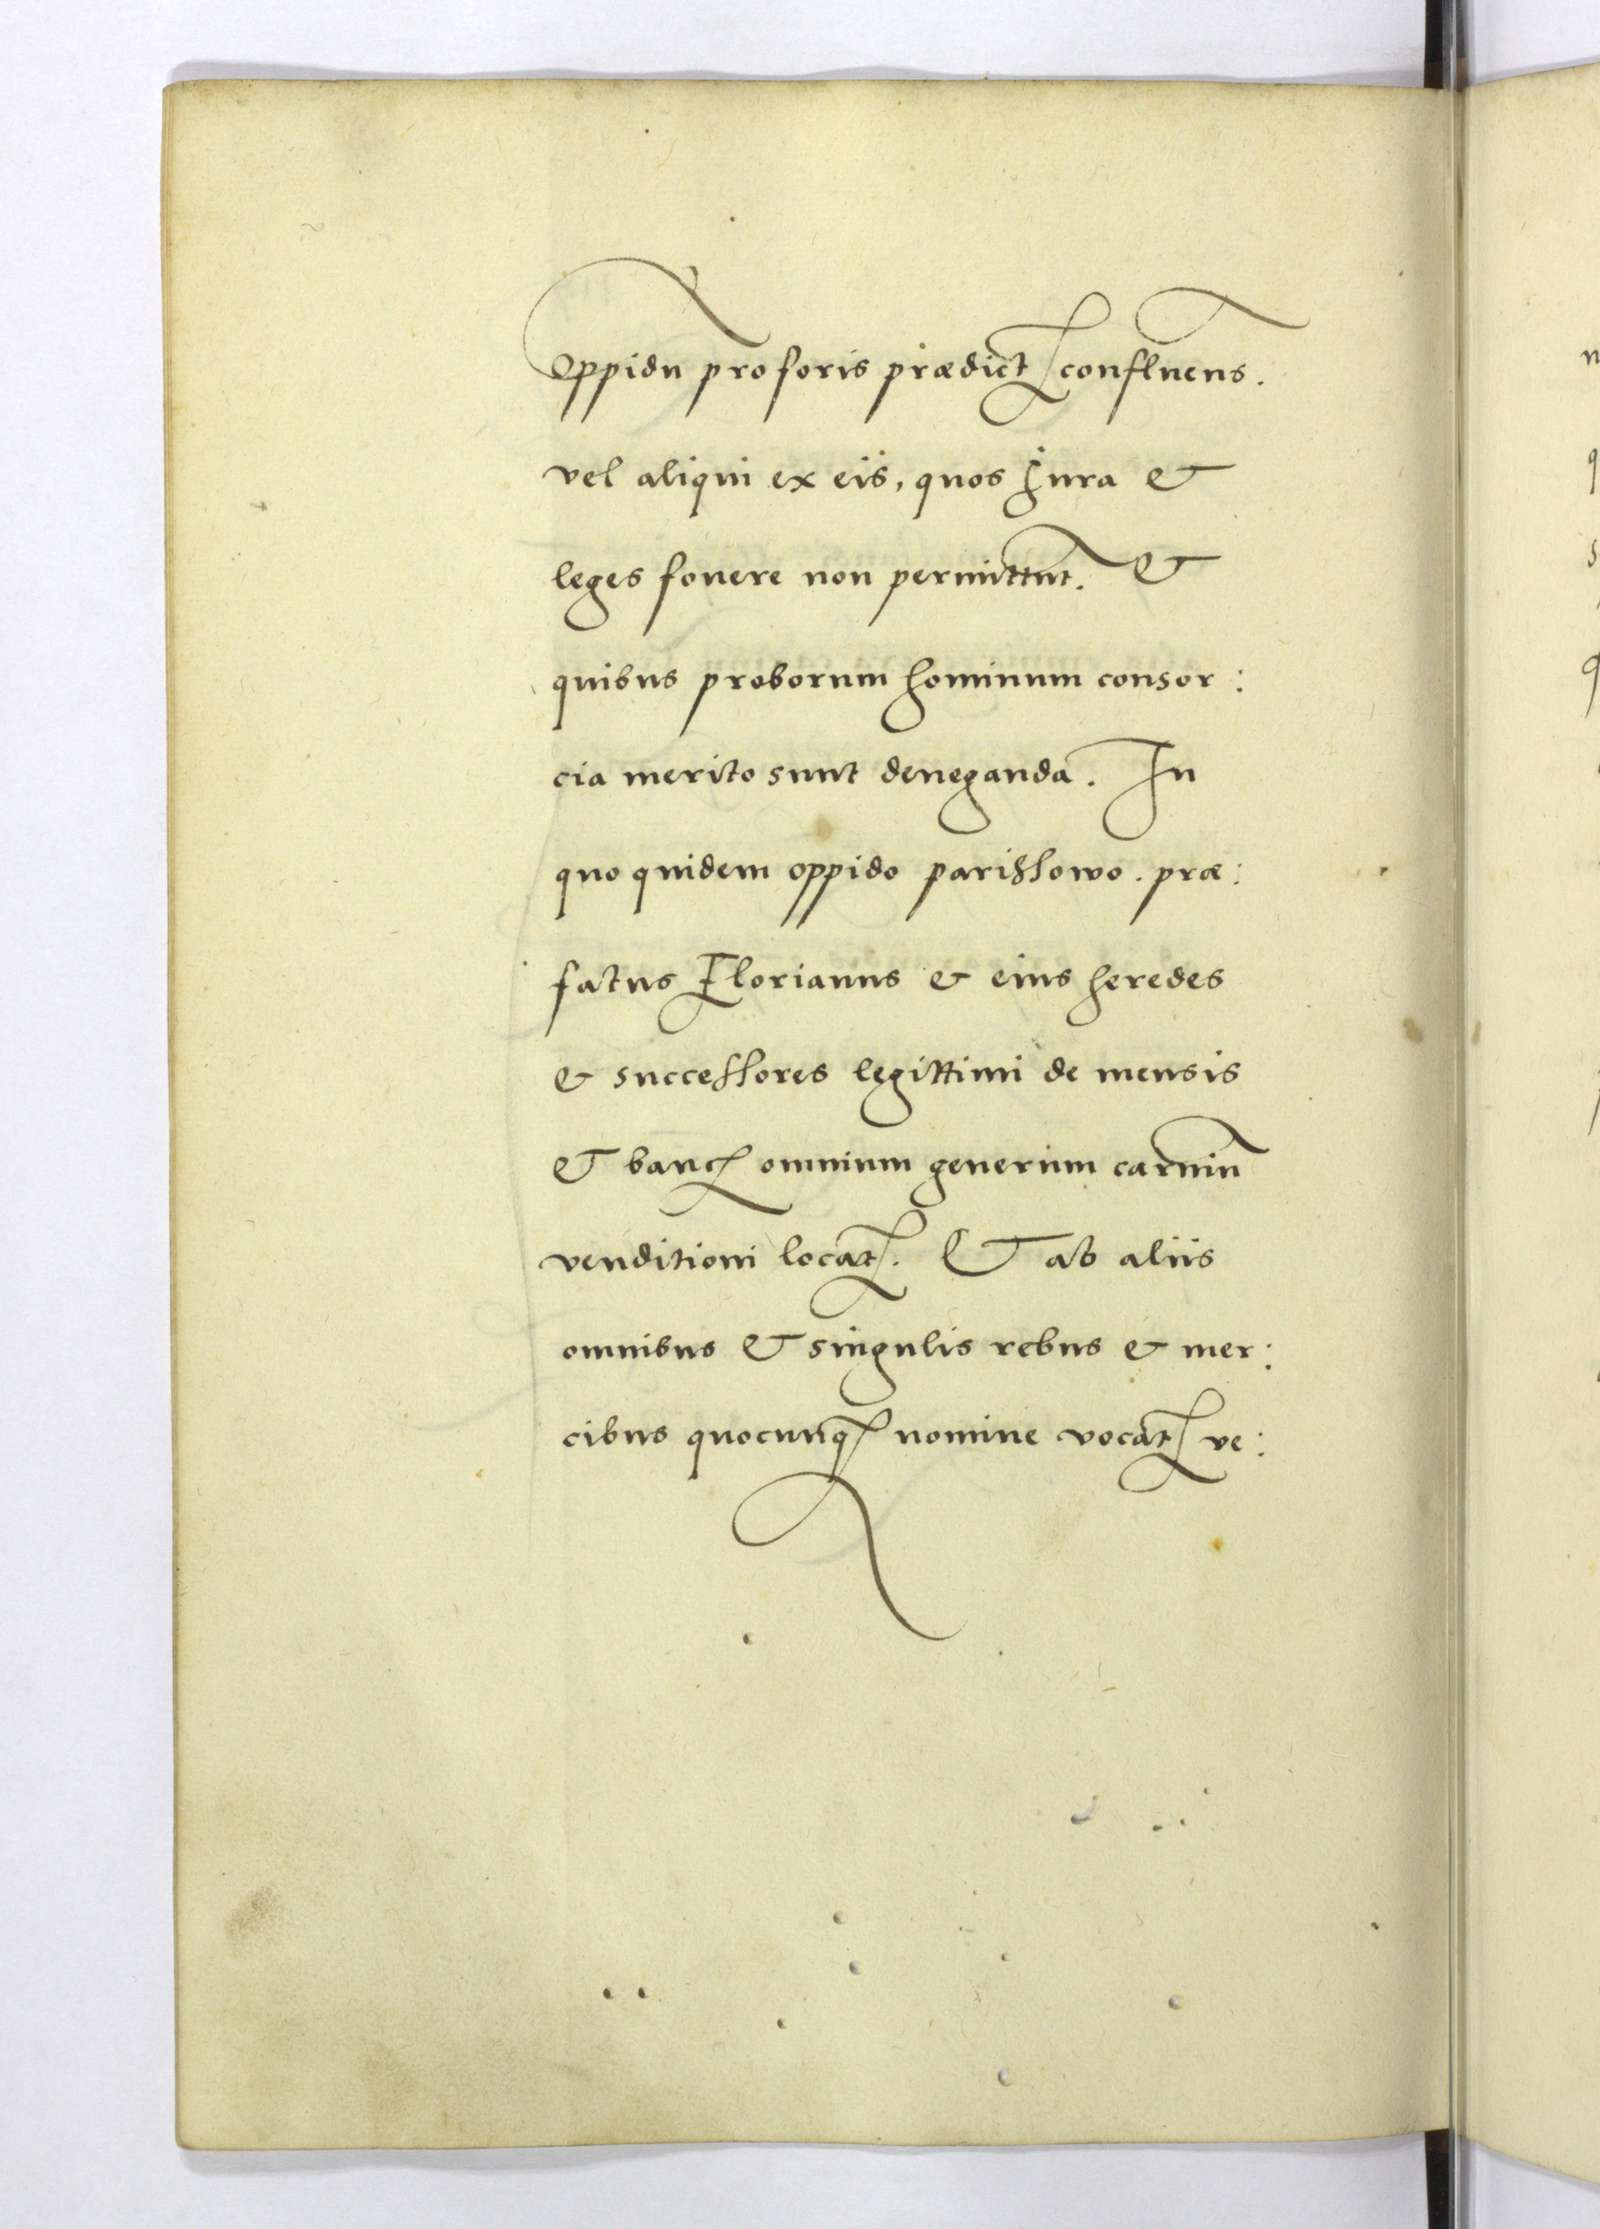 Oppidũ pro foris prædictꝭ confluens.
vel aliqui ex eis, quos Jura &
leges fovere non permittũt. &
quibus proborum hominum consor:
cia merito sunt deneganda. In
quo quidem oppido parissowo. præ:
fatus Florianus & eius heredes
& successores legittimi de mensis
& bancꝭ omnium generium carniũ
venditioni locatꝭ. Et ab aliis
omnibus & singulis rebus & mer:
cibus quocunqꝫ nomine vocatꝭ ve: